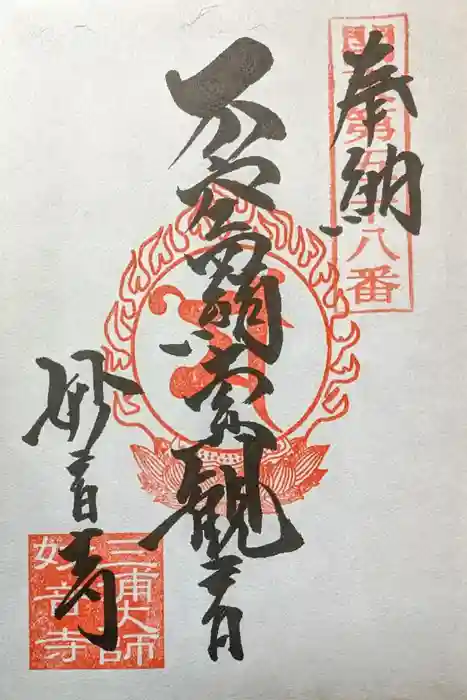 奉納
関東第五十八番
不空羂索観音
妙音寺
三浦大師
妙音寺